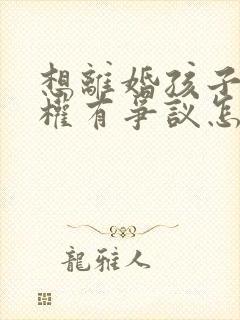 想離婚孩子
權有爭議怎
龍雅人